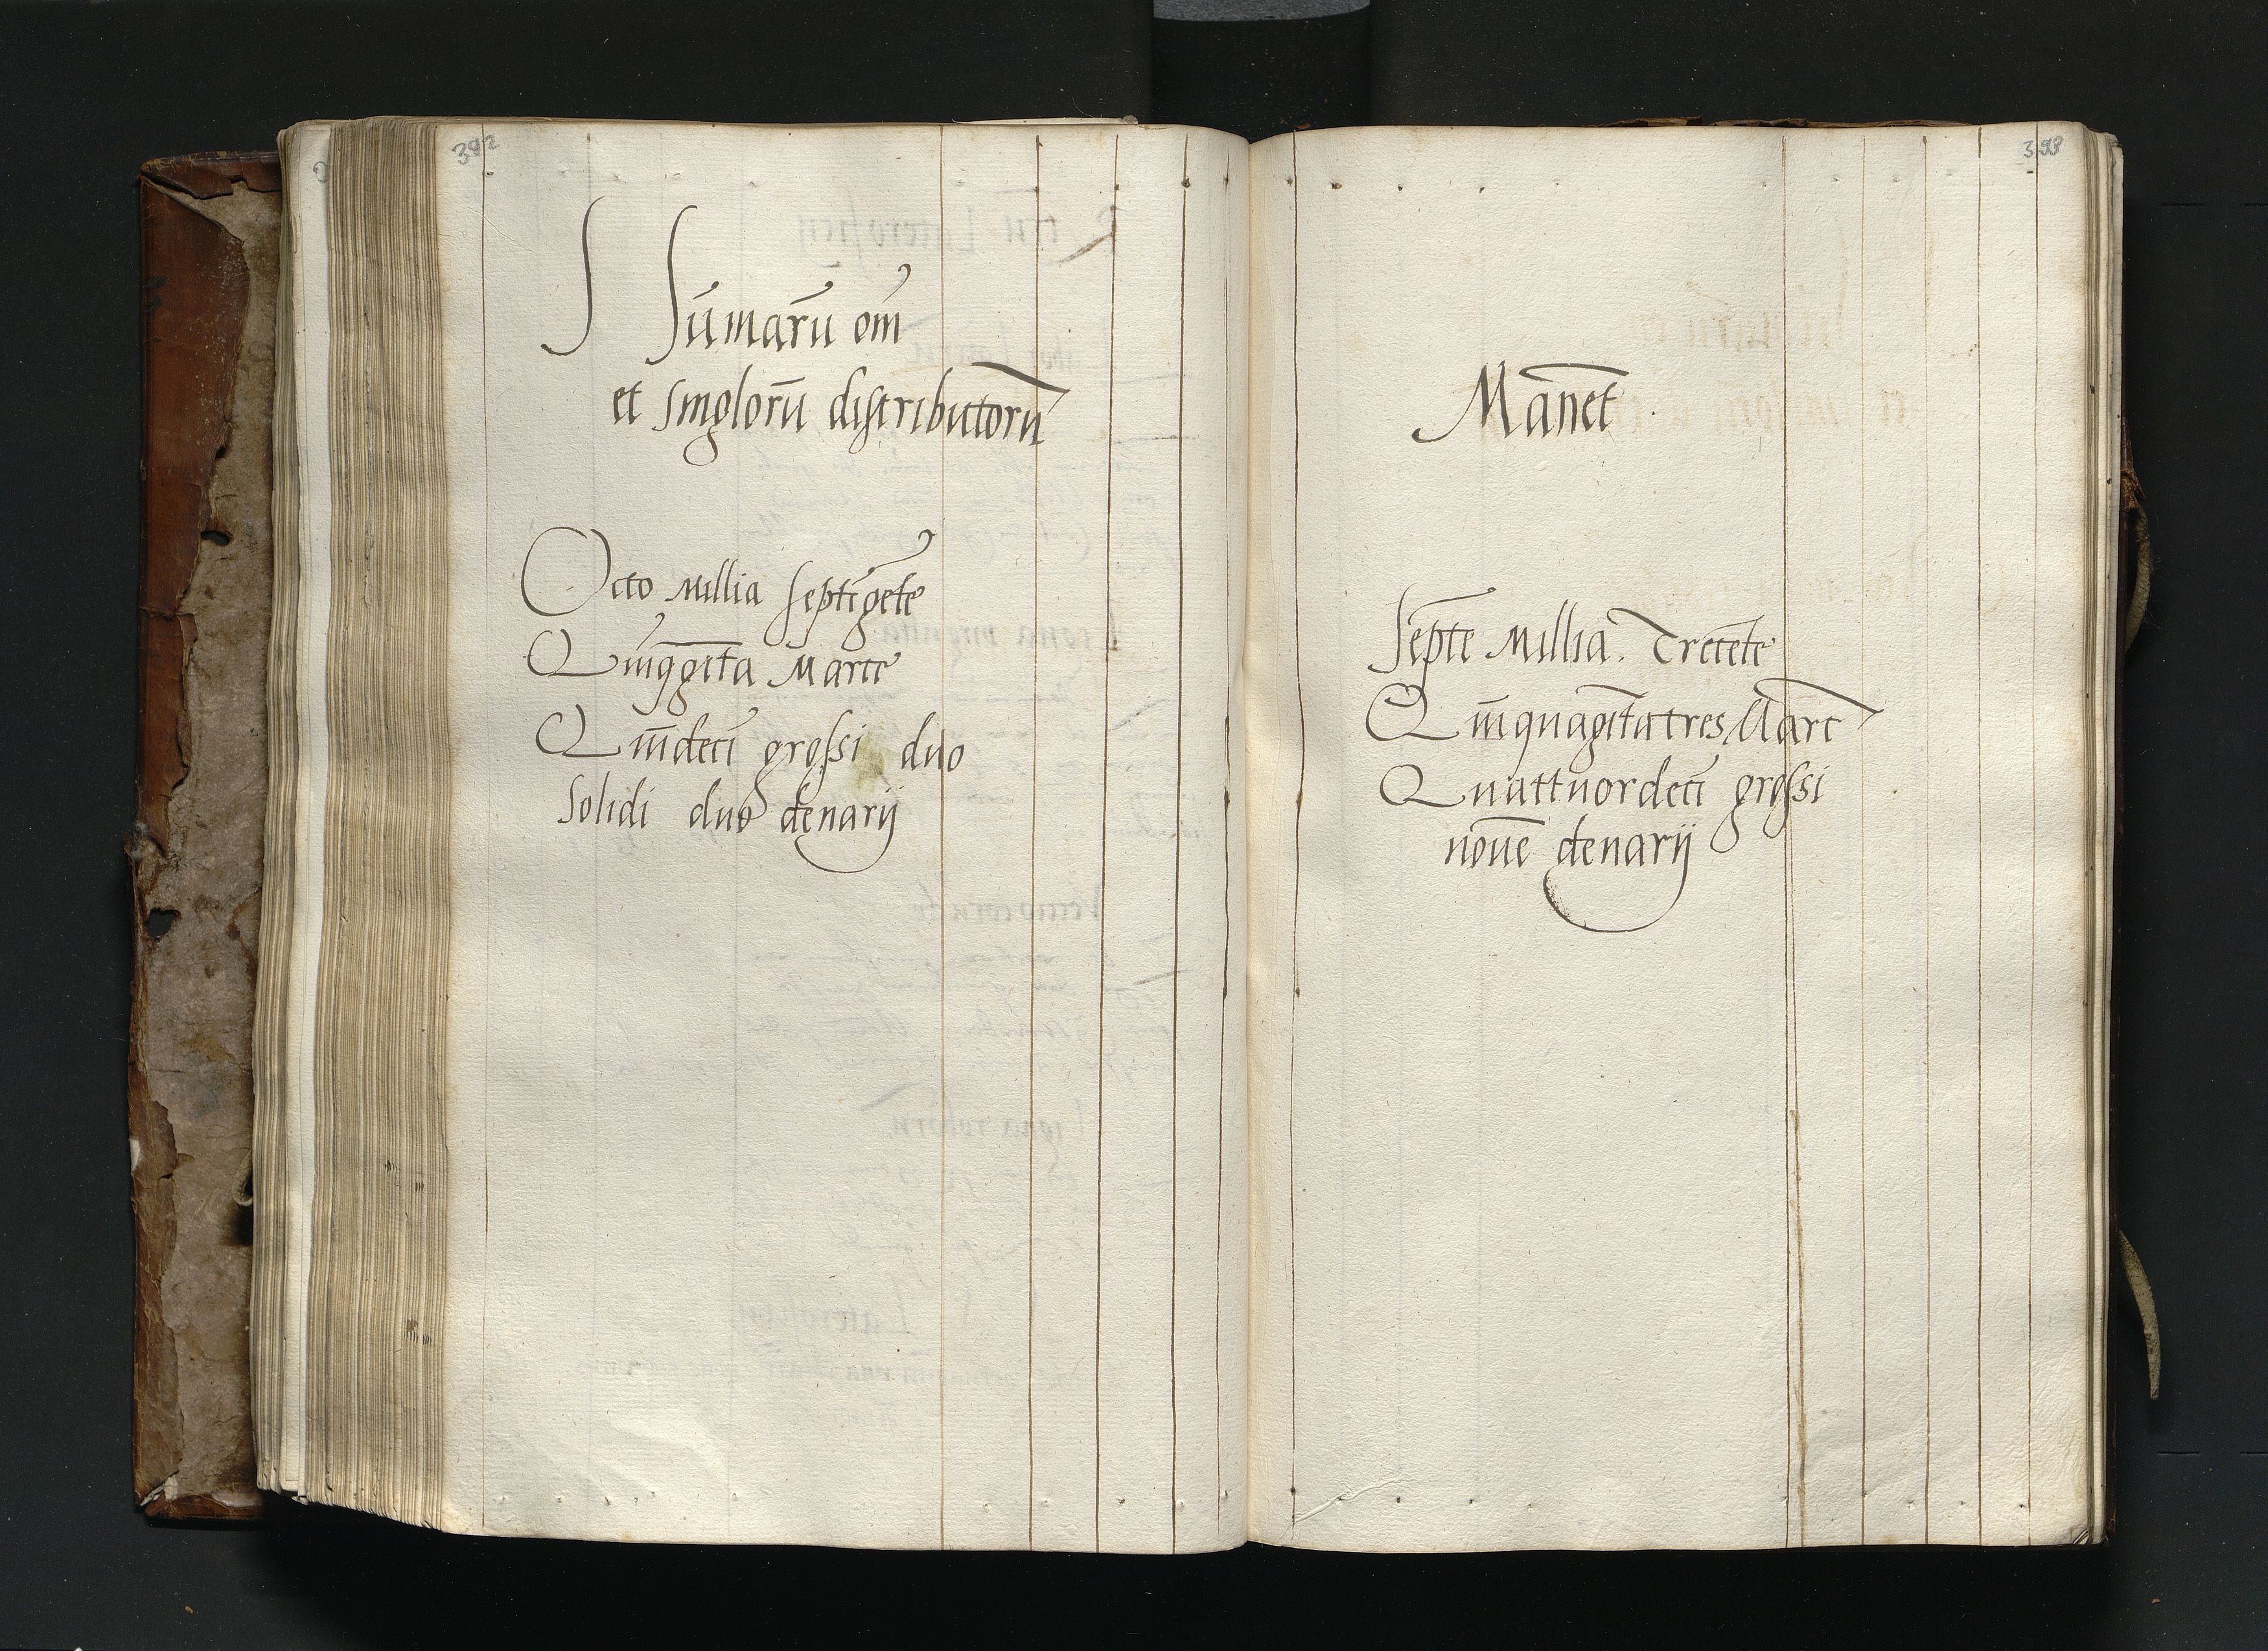 392
S Sūmarū om̄
et singlorū distributorū
Octo Millia septīgēte
Quīqgīta Marce
Quīdecī grossi duo
solidi duo denarij
393
Manēt
Septē Millia. Trecēte
Quīquagīta tres Marc
Quattuordecī grossi
nouē denarij